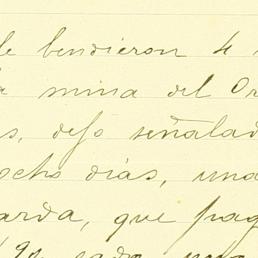 le bendieron 4
a mina del Or
s, dejo señalad
ocho días, una
arda, que pag